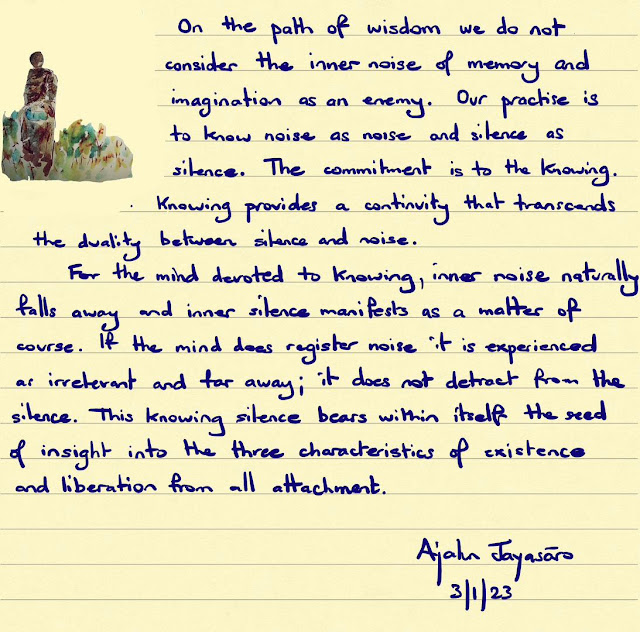 On the path of wisdom we do not
consider the inner noise of memory and
imagination as an enemy. Our practise is
to know noise as noise and silence as
silence. The commitment is to the knowing.
Knowing provides a continuity that transcends
the duality between silence and noise.
For the mind devoted to knowing, inner noise naturally
falls away and inner silence manifests as a matter of
course. If the mind does register noise it is experienced
as irrelevant and far away; it does not detract from the
silence. This knowing silence bears within itself the seed
of insight into the three characteristics of existence
and liberation from all attachment.
Ajahn Jayasāro
3/1/23